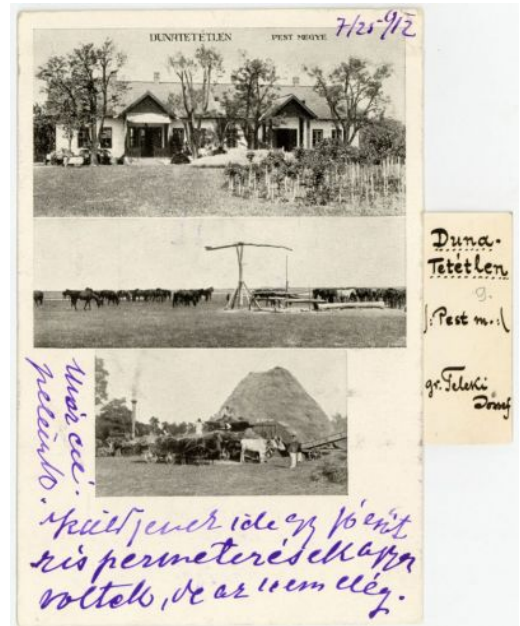 DUNATETÉTLEN PEST MEGYE
7/25 912
Duna-
Tetétlen
9.
/: Pest m.:/
gr. Teleki
József
küldjenek ide egy jó esőt
kis permeterések ugyan
voltak, de az nem elég.